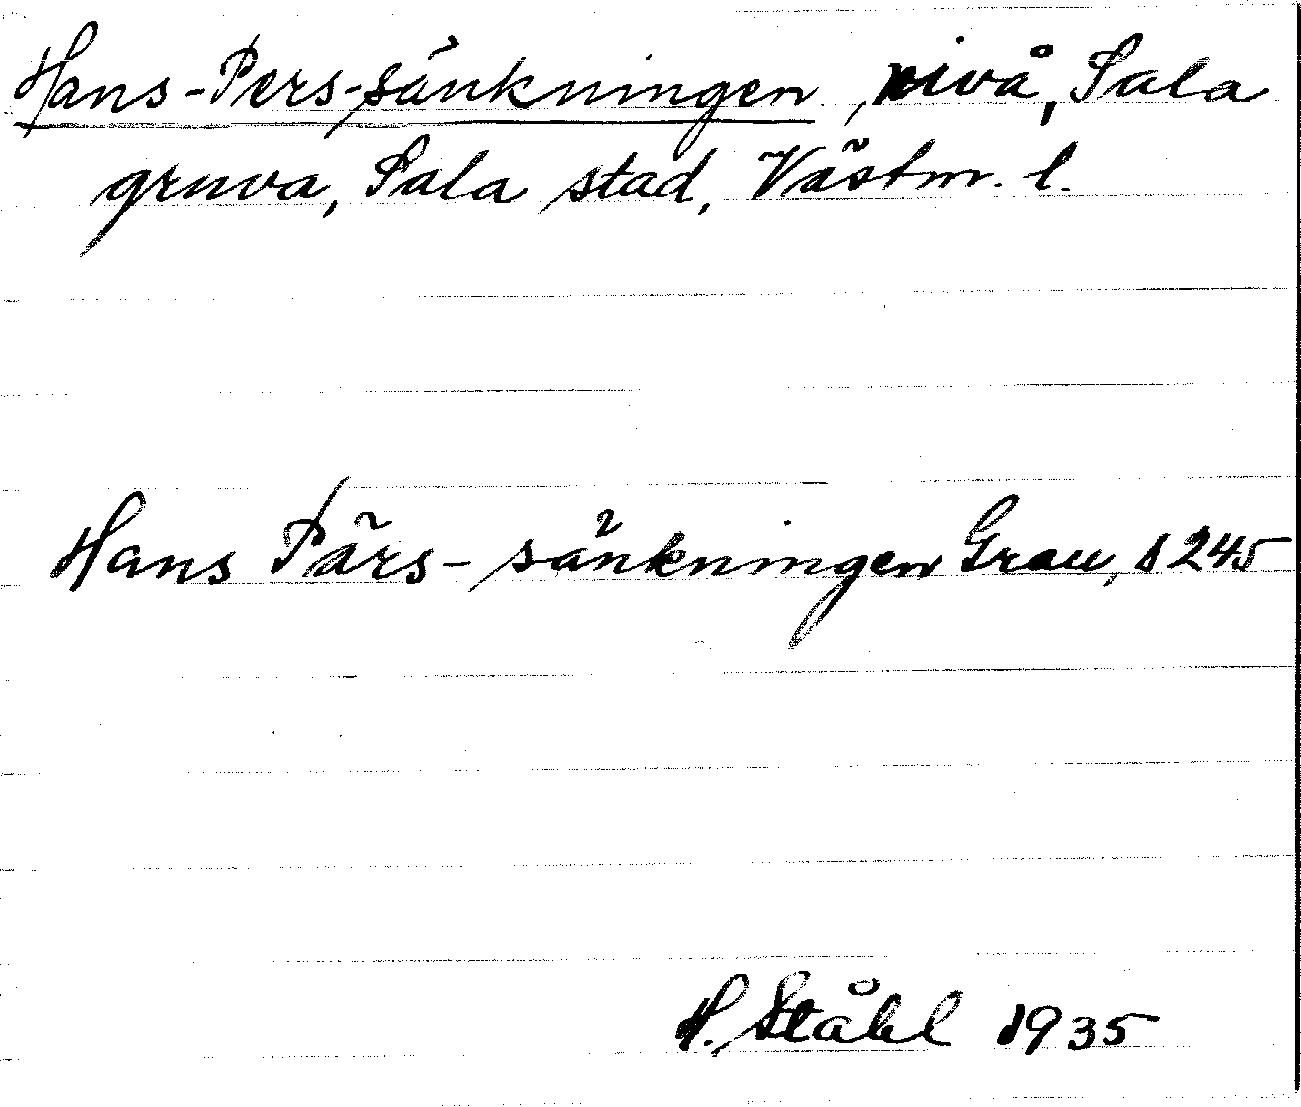 Hans-Pers-sänkningen, nivå, Sala
gruva, Sala stad, Västm. l.
Hans Pärs-sänkningen Grau, s 245
H. Ståhl 1935